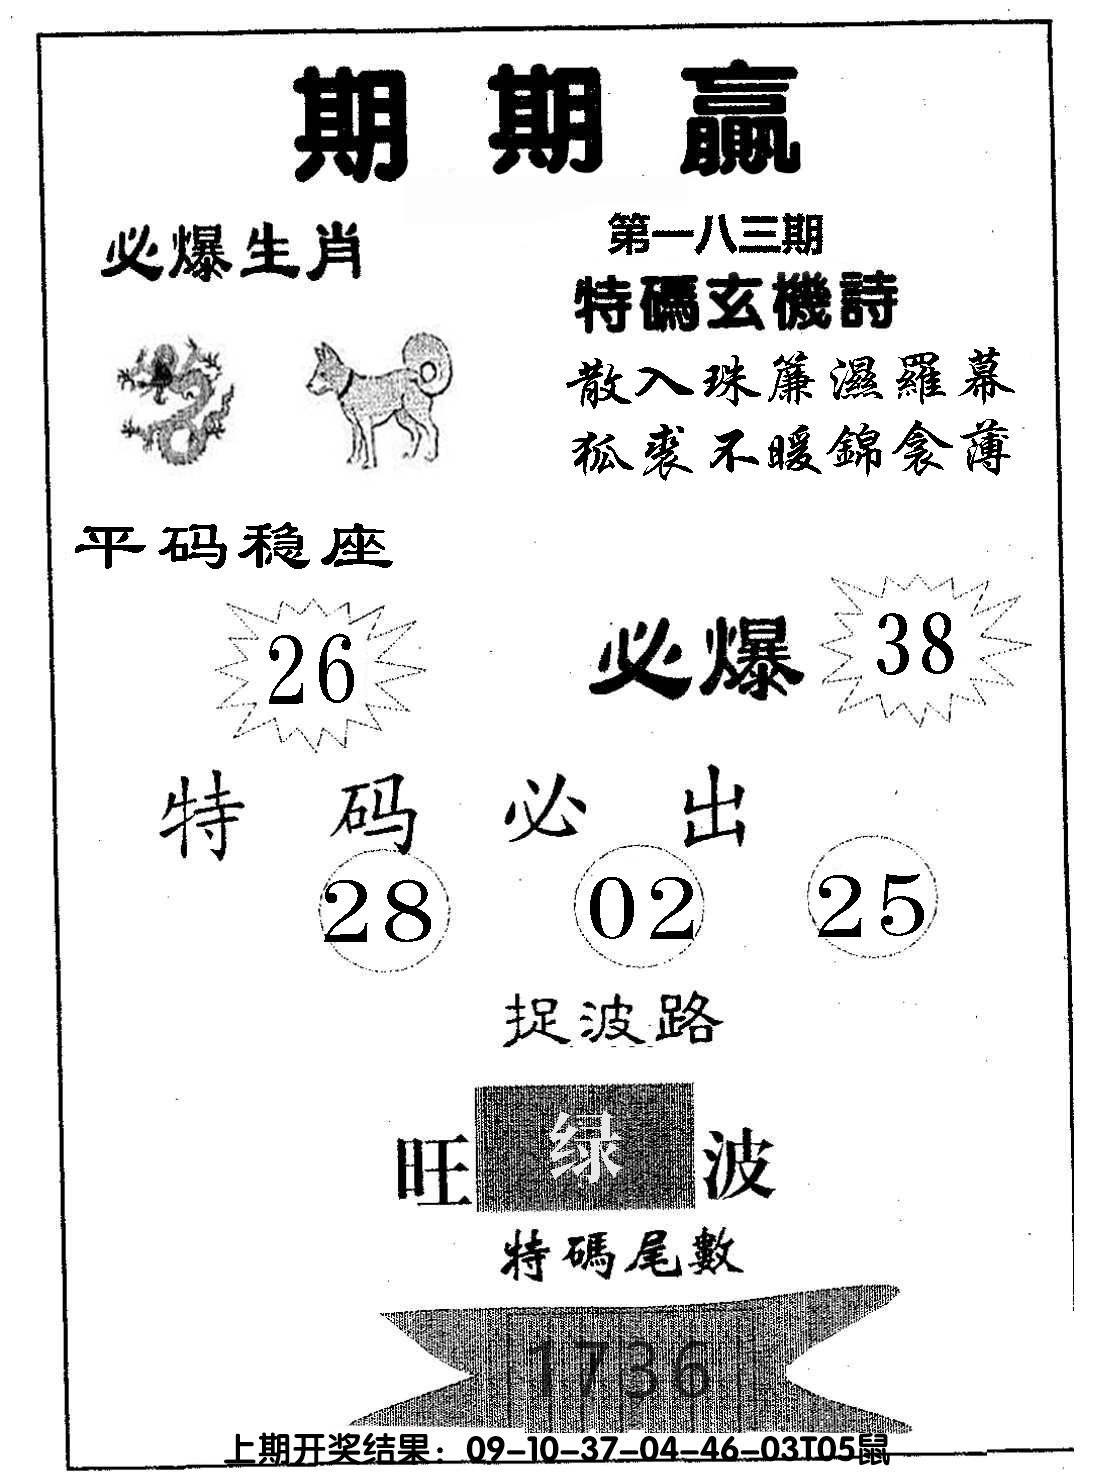 期期贏
必爆生肖
第一八三期
特碼玄機詩
散入珠簾濕羅幕
狐裘不暖錦衾薄
平码稳座
26
必爆
38
特码必出
28 02 25
捉波路
旺 绿 波
特碼尾數
1736
上期开奖结果：09-10-37-04-46-03T05鼠